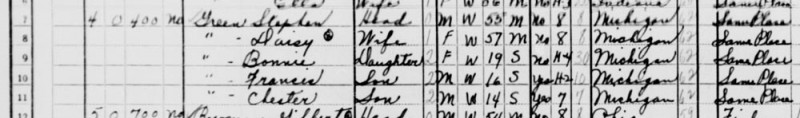 Ella Wife F W 56 M no H-3 Indiana Same Place
7 4 0 400 no Green Stephen Head 0 M W 53 M no 8 8 Michigan Same Place
8 " - Daisy Wife 1 F W 57 M no 8 8 Michigan Same Place
9 " - Bonnie Daughter 2 F W 19 S no H-4 30 Michigan Same Place
10 " - Francis Son 2 M W 16 S yes H-2 10 Michigan Same Place
11 " - Chester Son 2 M W 14 S yes 7 7 Michigan Same Place
12 5 0 700 no Gilbert Head 0 M W 54 M no 8 8 Ohio